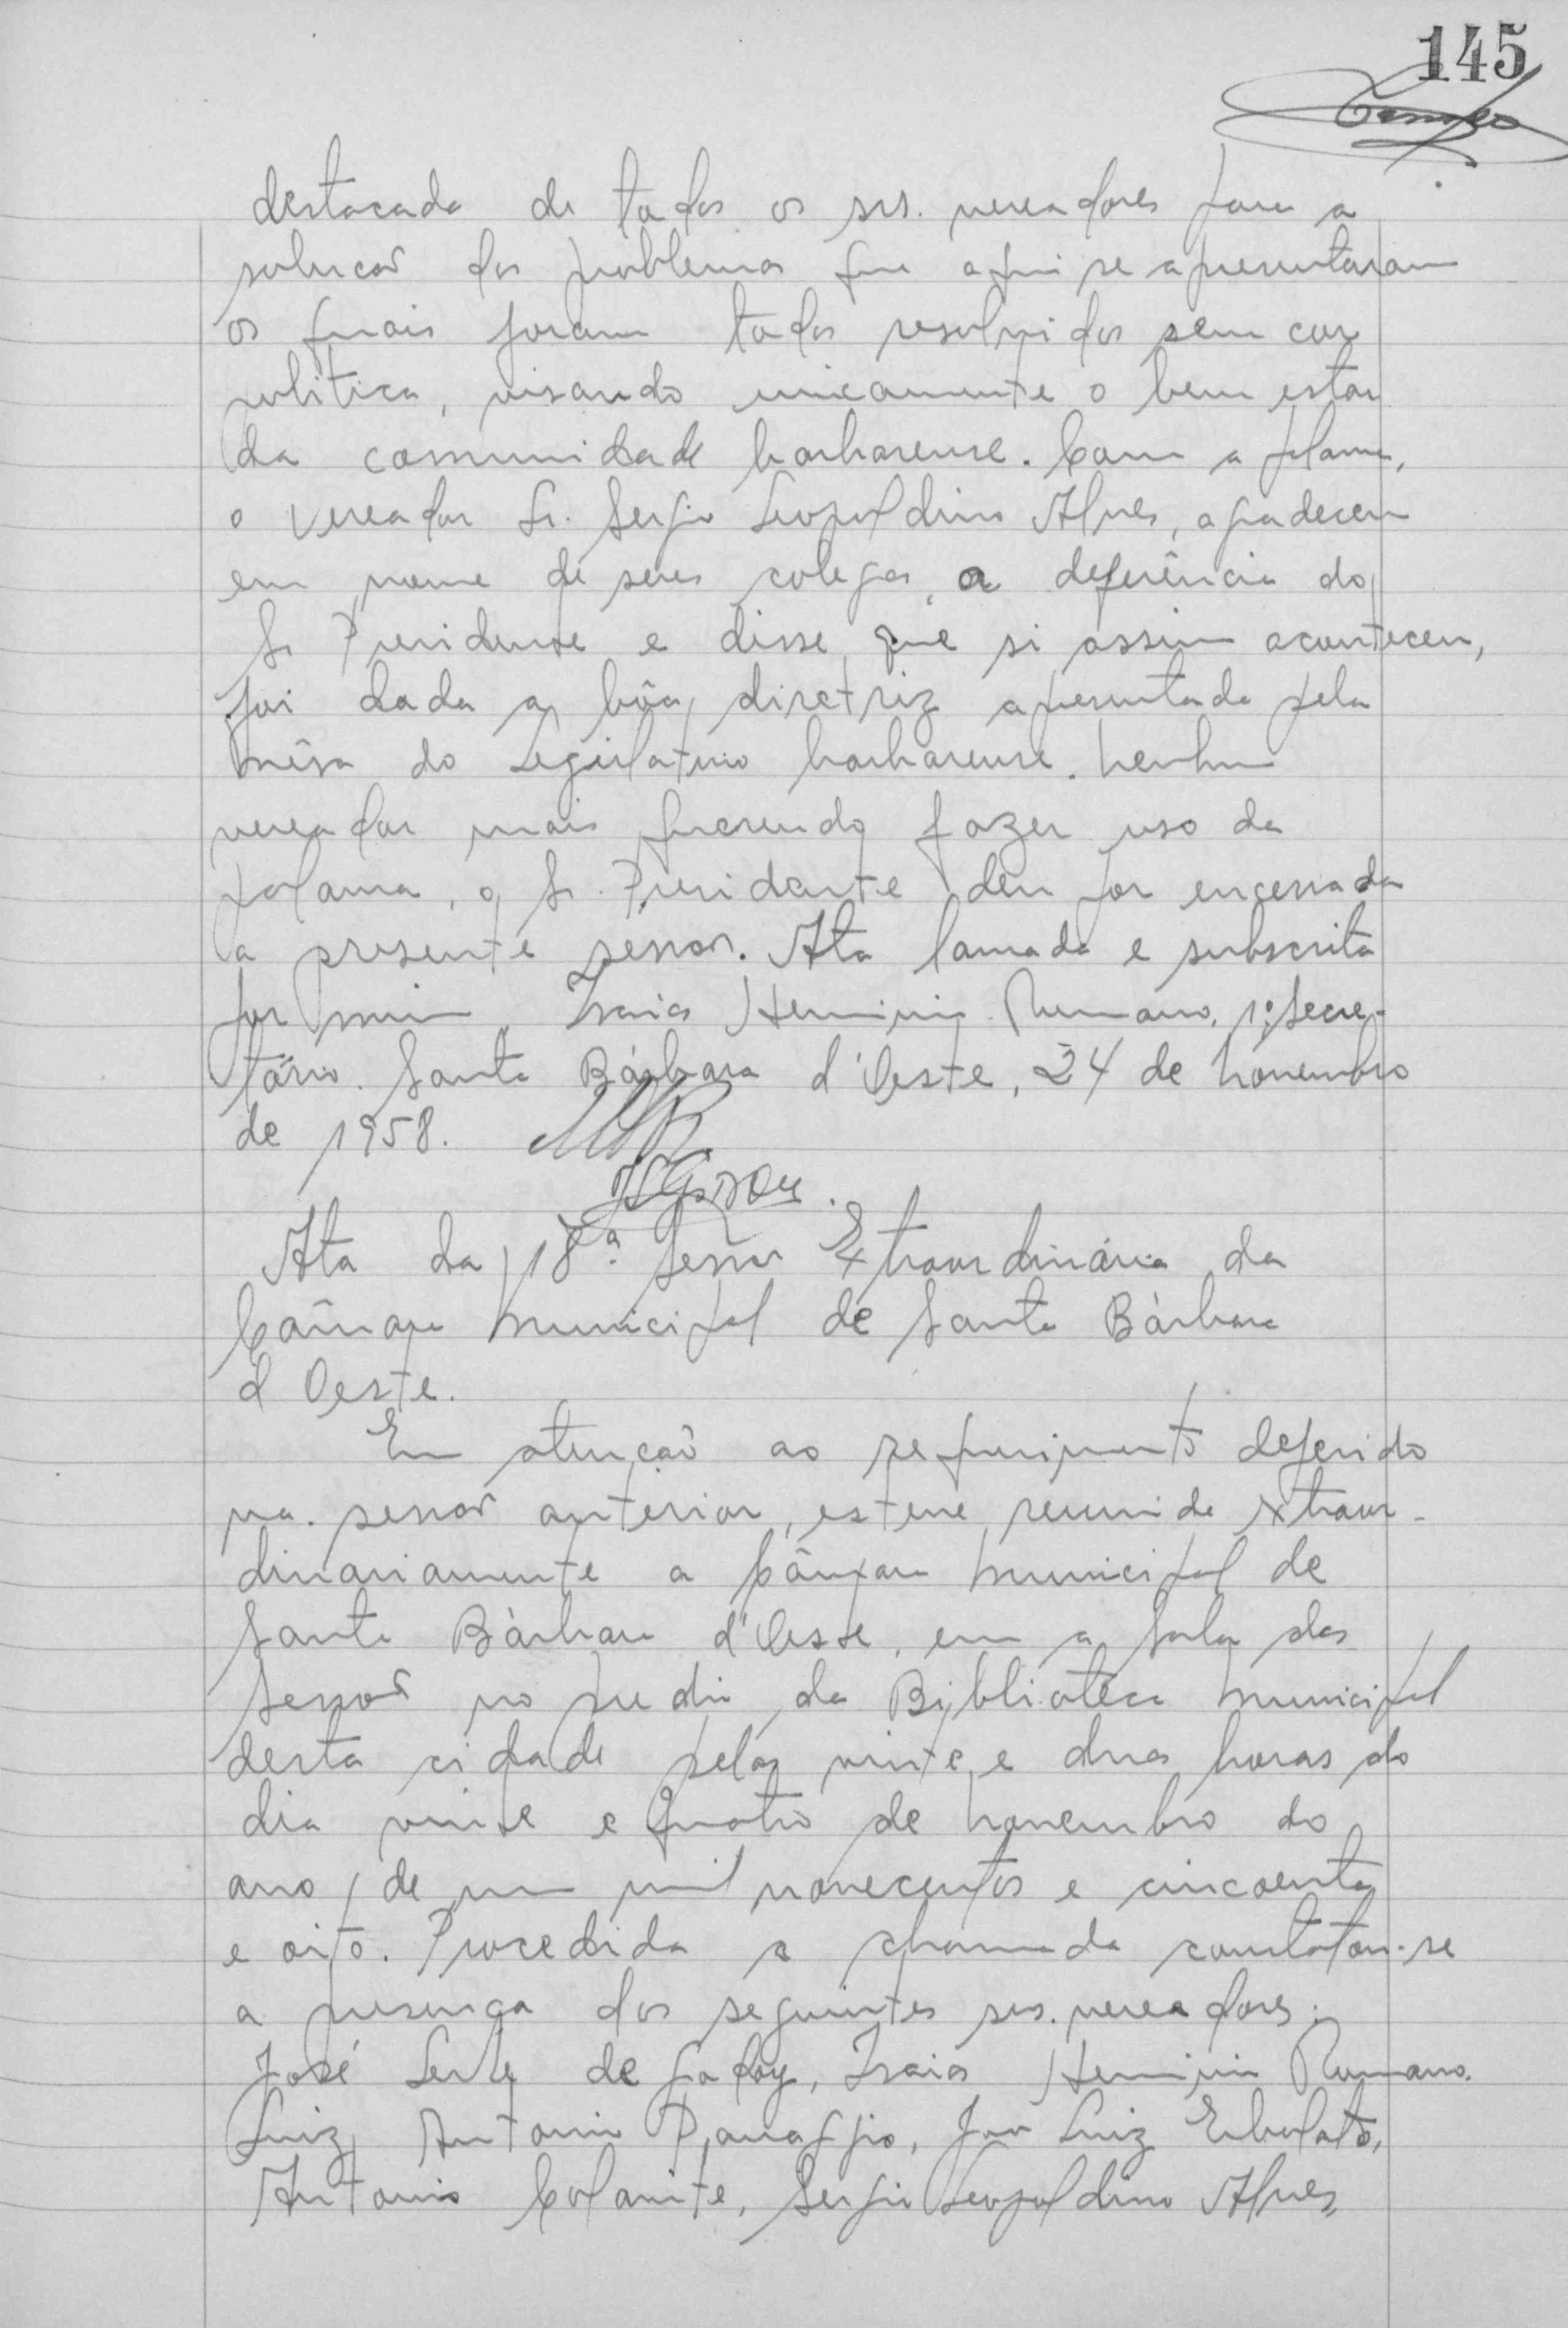 145
destacada de todos os srs. vereadores para a
solucaõ dos problemas que aqui se apresentaram
os quais foram todos resolvidos sem cor
politica, visando unicamente o bem estar
da comunidade barbarense. Com a palavra,
o vereador Sr. Sergio Leopoldino Alves, agradeceu
em nome de seus colegas, a deferência do
Sr Presidente e disse que si assim aconteceu,
foi dada a bôa diretriz apresentada pela
mêsa do Legislativo barbarense. Nenhum
vereador mais querendo fazer uso da
palavra, o Sr. Presidente deu por encerrada
a presente sessaõ. Ata lavrada e subscrita
por mim Isaias Herminio Romano, 1º secre-
tário. Santa Bárbara d'Oeste, 24 de novembro
de 1958.
Ata da 18ª Sessaõ Extraordinária da
Câmara Municipal de Santa Bárbara
d Oeste.
Em atençaõ ao requerimento deferido
na sessaõ anterior, esteve reunida extraor-
dinariamente a Câmara Municipal de
Santa Bárbara d'Oeste, em a sala das
Sessoẽs no predio da Biblioteca Municipal
desta cidade pelas vinte e duas horas do
dia vinte e quatro de novembro do
ano de um mil novecentos e cincoenta
e oito. Procedida a chamada constatou-se
a presença dos seguintes srs. vereadores:
José Leite de Godoy, Isaias Herminio Romano,
Luiz Antonio Panaggio, João Luiz Erbolato,
Antonio Colanite, Sergio Leopoldino Alves,